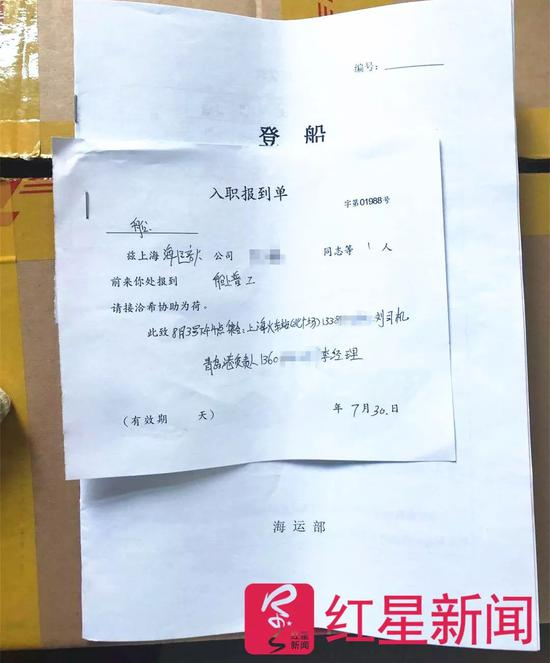 编号：
登船
入职报到单
字第01988号
船
兹上海 海 公司 同志等 1 人
前来你处报到 船上普工
请接洽希协助为荷。
此致 8月3号 点 集合：上海火车站(北广场) 1338 刘司机
青岛港负责人1360 李经理
(有效期 天) 年 7月30日
海运部
红星新闻
红星新闻